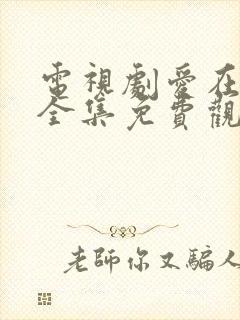 電視劇愛在
全集免費觀
老師你又騙人